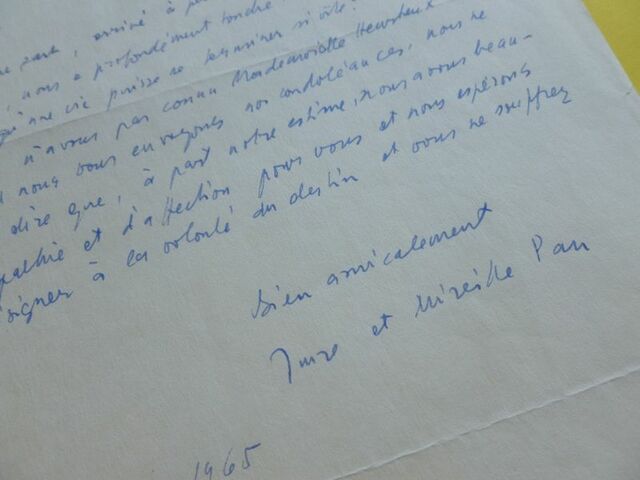 part, arrivé à
nous a profondément
qu'une vie puisse se terminer si vite.
n'avons pas connu Mademoiselle
nous vous envoyons nos condoléances, nous ne
dire que, à part notre estime, nous avons beau-
pathie et d'affection pour vous et nous espérons
signer à la volonté du destin et vous ne souffrez
Bien amicalement
et Mireille Pan
1965